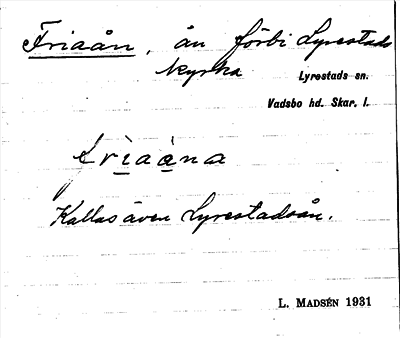 Friaån, ån förbi Lyrestads
kyrka
Lyrestads sn.
Vadsbo hd. Skar. l.
Kallas även Lyrestadsån.
L. MADSÉN 1931